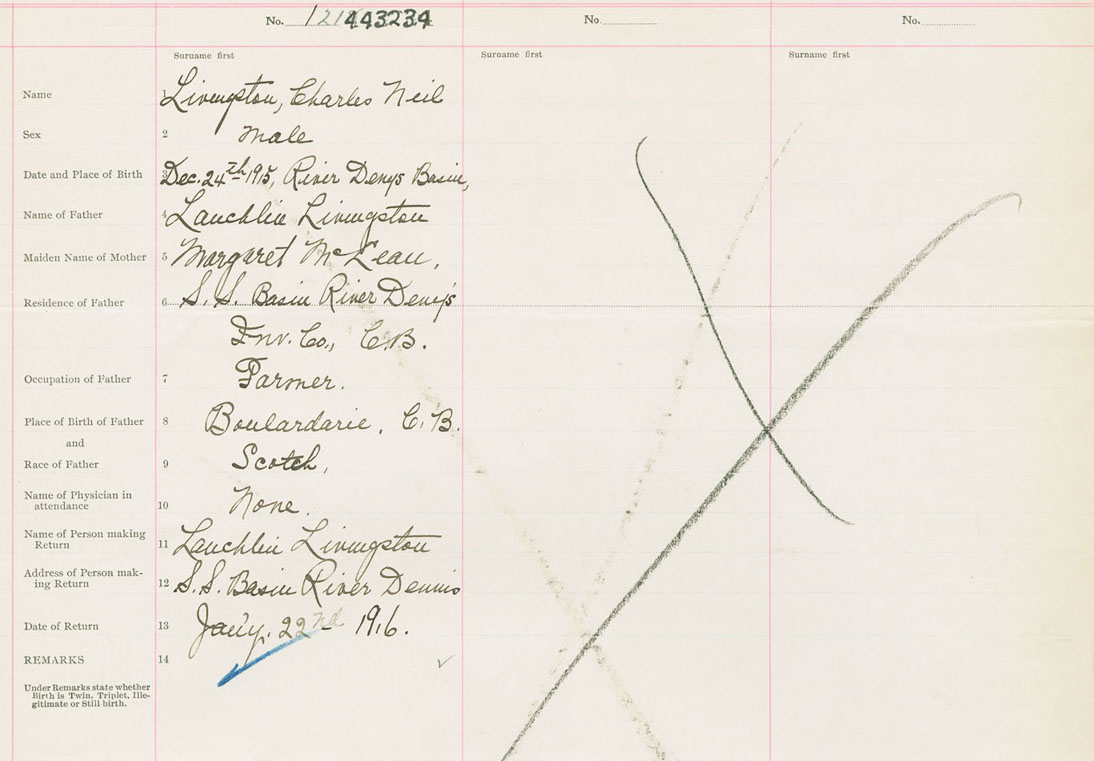 No. 443234 No. No.
Surname first Surname first Surname first
Name 1 Livingston, Charles Neil
Sex 2 Male
Date and Place of Birth 3 Dec. 24th 1915, River Denys Basin,
Name of Father 4 Lauchlin Livingston
Maiden Name of Mother 5 Margaret McLean,
Residence of Father 6 S. S. Basin River Deny's
Inv. Co., C.B.
Occupation of Father 7 Farmer.
Place of Birth of Father 8 Boulardarie, C.B.
and
Race of Father 9 Scotch,
Name of Physician in
attendance 10 None.
Name of Person making
Return 11 Lauchlin Livingston
Address of Person mak-
ing Return 12 S. S. Basin River Dennis
Date of Return 13 Jan'y. 22nd 1916.
REMARKS 14
Under Remarks state whether
Birth is Twin, Triplet, Ille-
gitimate or Still-birth.